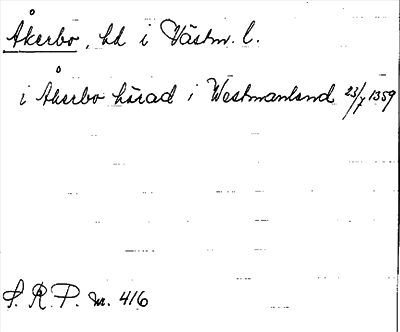 Åkerbo, hd i Västm. l.
i Åkerbo härad i Westmanland 23/7 1359
S. R. P. nr. 416